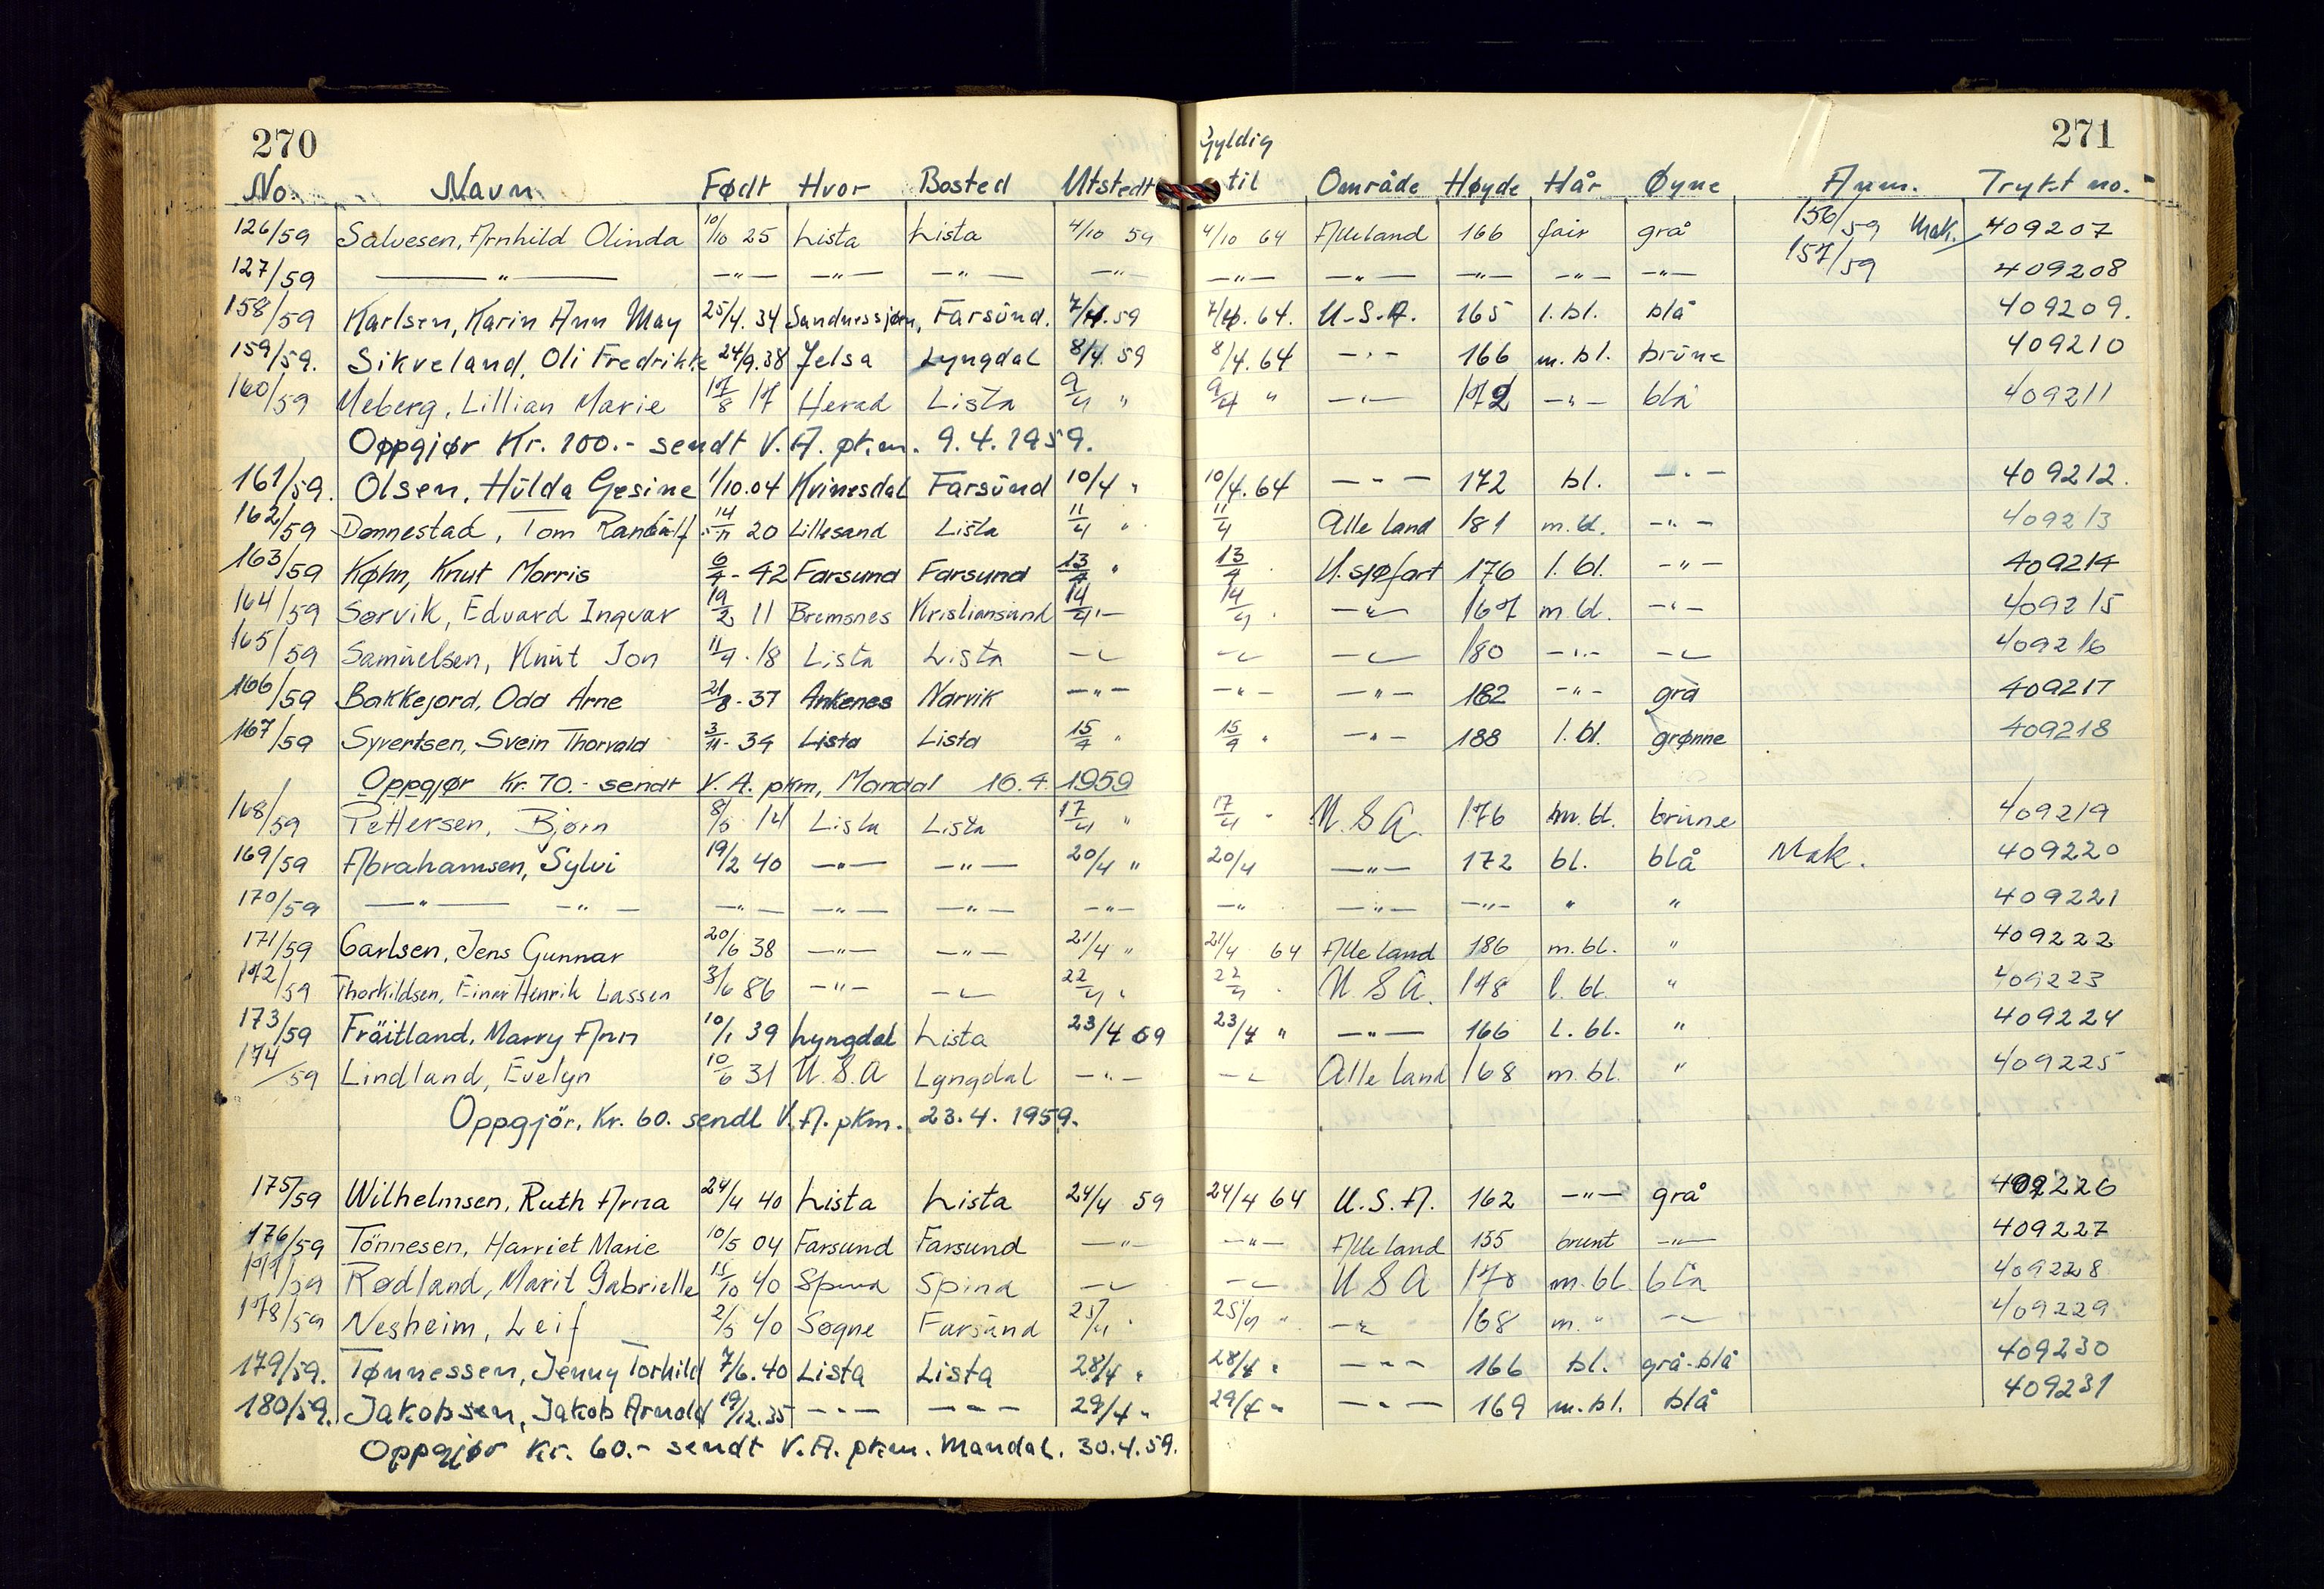 270
271
Gyldig
No. Navn Født Hvor Bosted Utstedt til Område Høyde Hår Øyne Anm. Trykt no.
126/59 Salvesen, Arnhild Olinda 10/10 25 Lista Lista 4/10 59 4/10 64 Alle land 166 fair grå 156/59 Mak. 409207
127/59 —"— —"— —"— —"— —"— —"— —"— —"— —"— —"— 157/59 409208
158/59 Karlsen, Karin Ann May 25/4. 34 Sandnessjøen, Farsund. 7/4. 59 7/4. 64. U.S.A. 165 l.bl. blå 409209.
159/59. Sikveland, Oli Fredrikke 24/9.38 Jelsa Lyngdal 8/4 59 8/4. 64 —"— 166 m.bl. brune 409210
160/59 Meberg, Lillian Marie 17/8 17 Herad Lista 9/4 " 9/4 " —"— 172 —"— blå 409211
Oppgjør Kr. 100.- sendt V.A. pkm. 9.4.1959.
161/59. Olsen, Hulda Gesine 1/10.04 Kvinesdal Farsund 10/4 " 10/4. 64 —"— 172 bl. —"— 409212.
162/59 Dønnestad, Tom 14/11 20 Lillesand Lista 11/4 " 11/4 Alle land 181 m.bl. —"— 409213
163/59 Køhn, Knut Morris 6/4 - 42 Farsund Farsund 13/4 " 13/4 U.sjøfart 176 l.bl. —"— 409214
164/59 Sørvik, Edvard Ingvar 19/2 11 Bremsnes Kristiansund 14/4 "— 14/4 —"— 167 m bl. —"— 409215
165/59 Samuelsen, Knut Jon 11/9 . 18 Lista Lista —"— —"— —"— 180 —"— —"— 409216
166/59 Bakkejord, Odd Arne 21/8 - 37 Ankenes Narvik —"— —"— —"— 182 —"— grå 409217
167/59 Syvertsen, Svein Thorvald 3/11 - 34 Lista Lista 15/4 " 15/4 " —"— 188 l.bl. grønne 409218
Oppgjør Kr. 70.- sendt V.A. pkm, Mandal 16.4.1959
168/59 Pettersen, Bjørn 8/5 14 Lista Lista 17/4 " 17/4 " U.S.A. 176 m.bl. brune 409219
169/59 Abrahamsen, Sylvi 19/2 40 —"— —"— 20/4 " 20/4 —"— 172 bl. blå Mak. 409220
170/59 —"— —"— —"— —"— —"— —"— —"— —"— —"— " " 409221
171/59 Carlsen, Jens Gunnar 20/6 38 —"— —"— 21/4 " 21/4 64 Alle land 186 m.bl. " 409222
172/59 Thorkildsen, Einar Henrik Lassen 3/6 86 —"— —"— 22/4 " 22/4 " U.S.A. 178 l.bl. " 409223
173/59 Fröitland, Marry Ann 10/1 39 Lyngdal Lista 23/4 59 23/4 " —"— 166 l.bl. " 409224
174/59 Lindland, Evelyn 10/6 31 U.S.A Lyngdal —"— —"— Alle land 168 m.bl. " 409225
Oppgjör, Kr. 60. sendt V.A. pkm. 23.4.1959.
175/59 Wilhelmsen, Ruth Arna 24/4 40 Lista Lista 24/4 59 24/4 64 U.S.A. 162 —"— grå 409226
176/59 Tönnesen, Harriet Marie 10/5 04 Farsund Farsund —"— —"— Alle land 155 brunt —"— 409227
177/59 Rødland, Marit Gabrielle 15/10 40 Spind Spind —"— —"— U S A 170 m.bl. blå 409228
178/59 Nesheim, Leif 2/5 40 Søgne Farsund 25/4 " 25/4 " —"— 168 m. " —"— 409229
179/59. Tønnessen, Jenny Torhild 7/6.40 Lista Lista 28/4 " 28/4 " —"— 166 bl. grå-blå 409230
180/59. Jakobsen, Jakob Arnold 19/12.35 —"— —"— 29/4 " 29/4 " —"— 169 m.bl. blå 409231
Oppgjør Kr. 60.- sendt V.A. pkm. Mandal. 30.4.59.